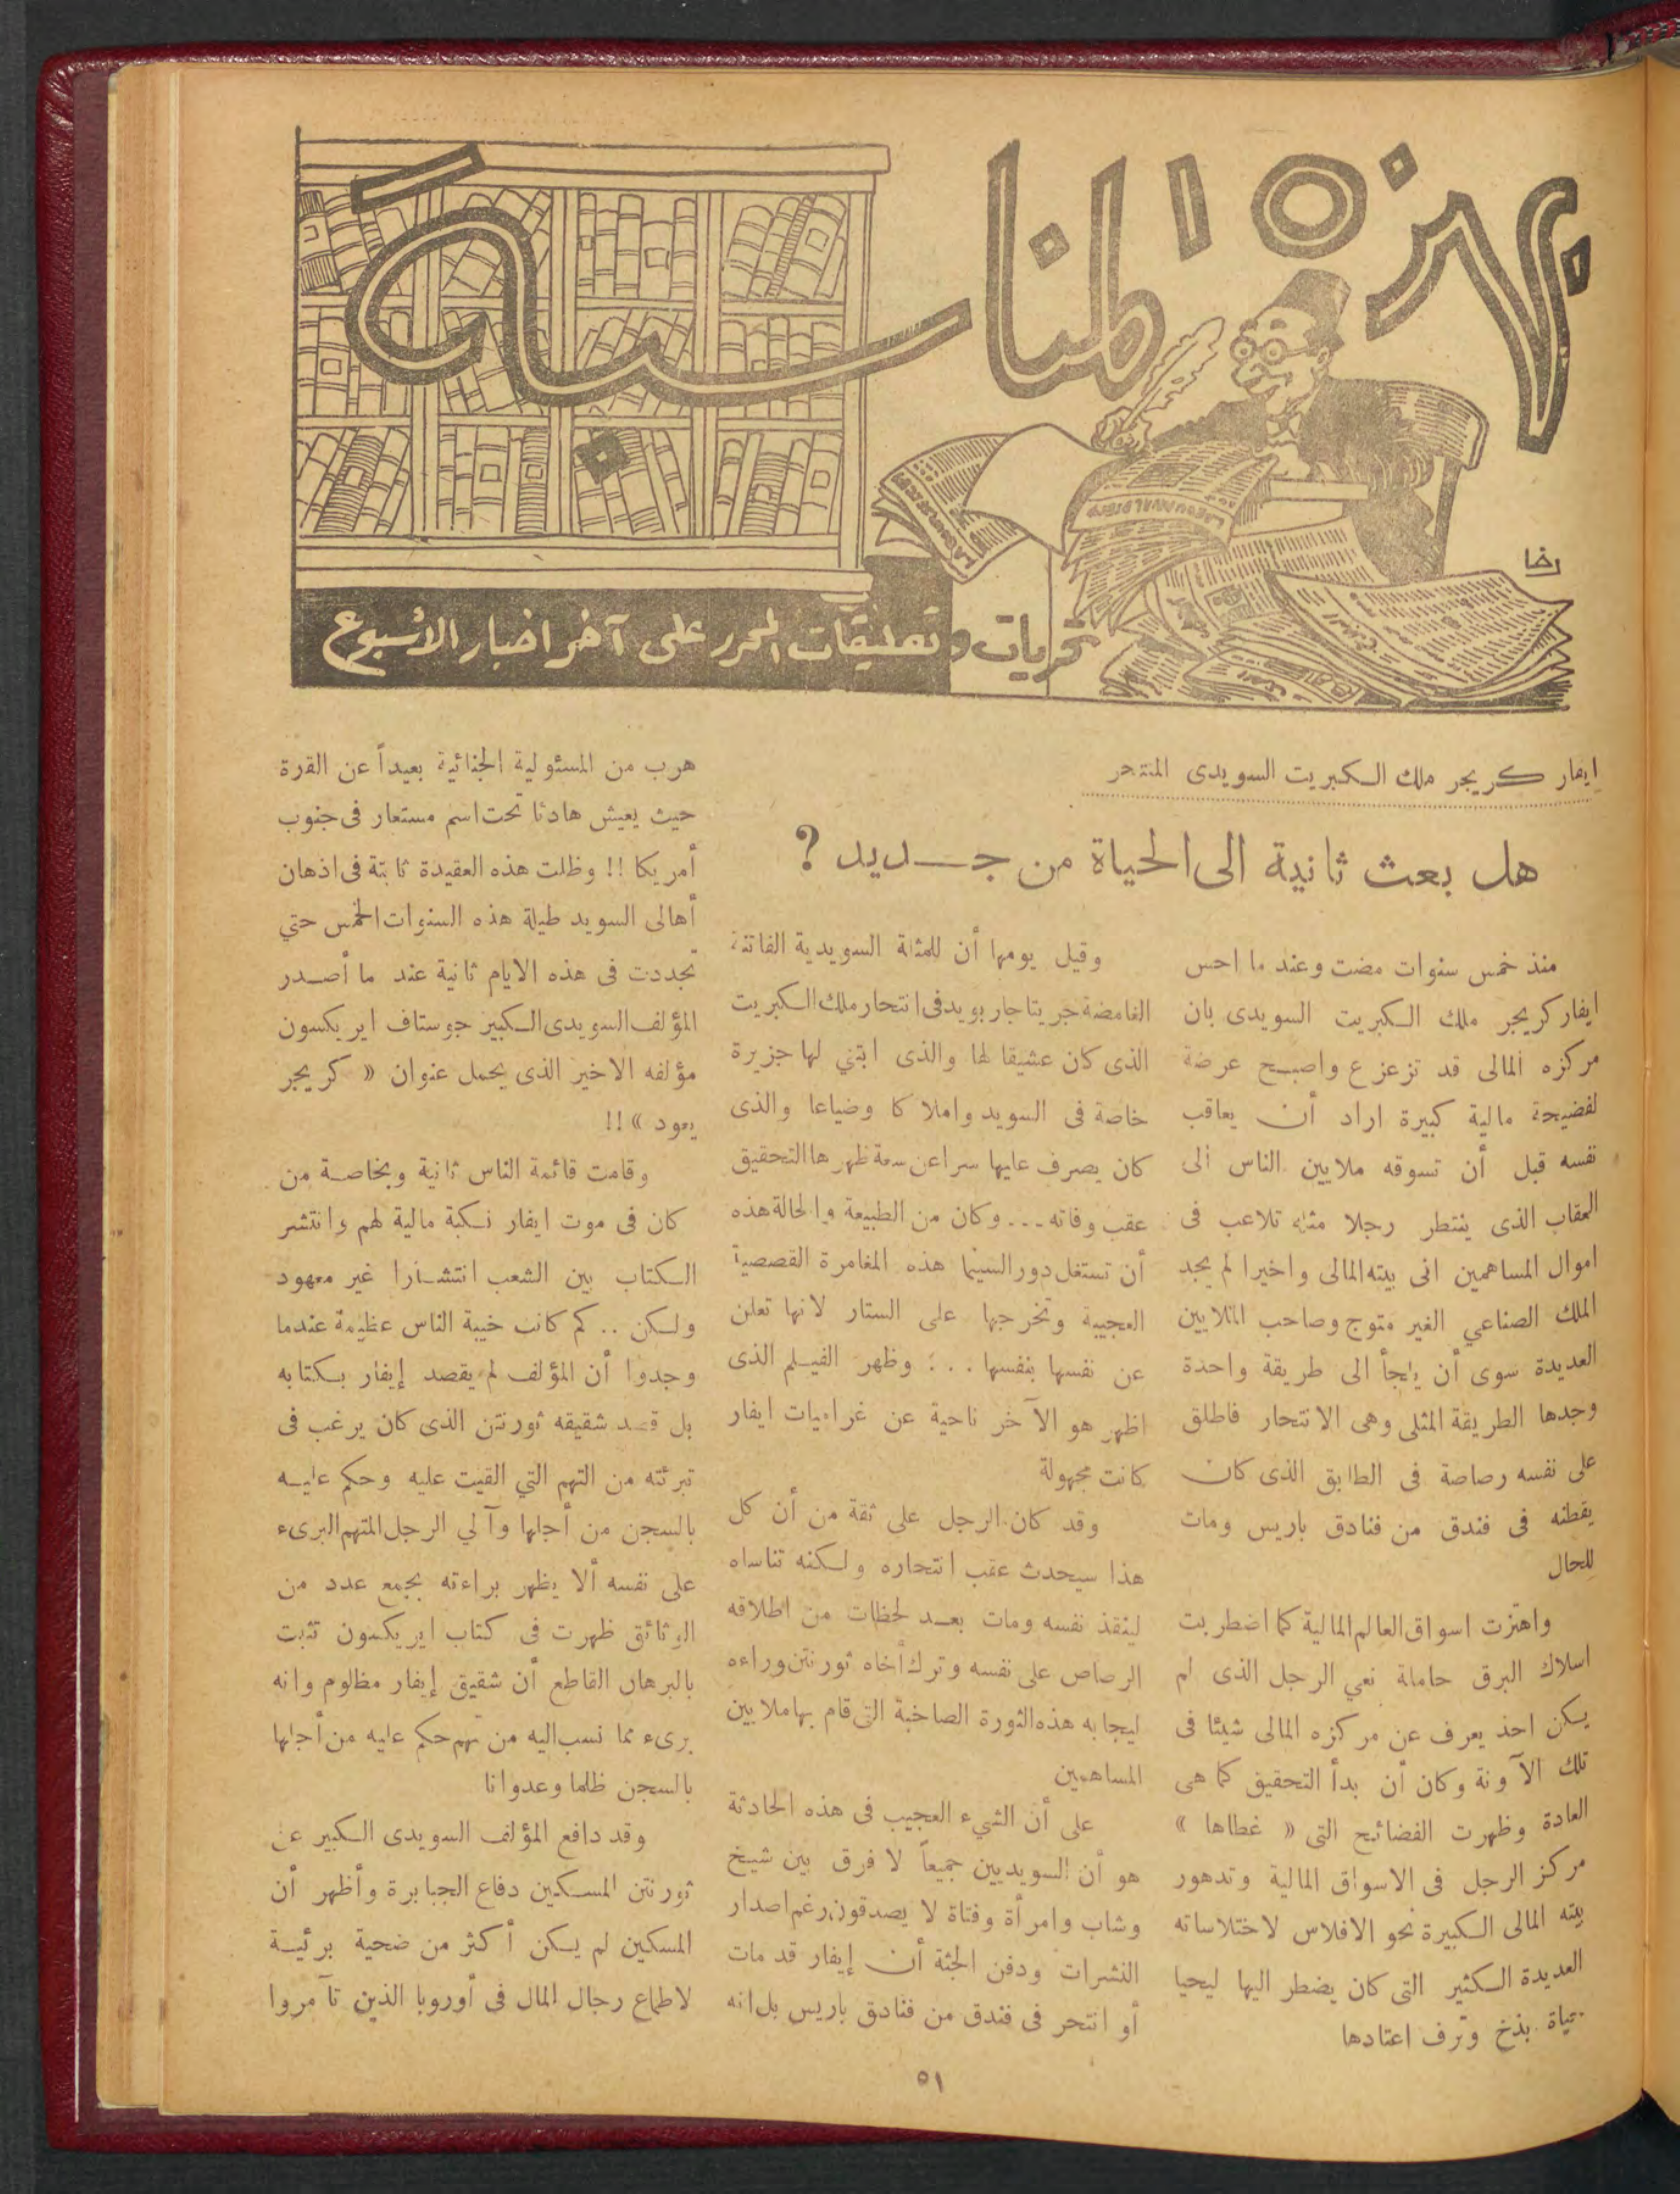 بين ١٥ طناسنة
تحريات وتعليقات المحرر على آخر اخبار الأسبوع
رضا
ايفار كريجر ملك الكبريت السويدى المنتحر
هل بعث ثانية الى الحياة من جديد ?
منذ خمس سنوات مضت وعند ما احس
ايفار كريجر ملك الكبريت السويدى بان
مركزه المالى قد تزعزع واصبح عرضة
لفضيحة مالية كبيرة اراد أن يعاقب
نفسه قبل أن تسوقه ملايين الناس الى
العقاب الذى ينتظر رجلا مثله تلاعب فى
اموال المساهمين فى بيته المالى واخيرا لم يجد
الملك الصناعي الغير متوج وصاحب الملايين
العديدة سوى أن يلجأ الى طريقة واحدة
وجدها الطريقة المثلى وهى الانتحار فاطلق
على نفسه رصاصة فى الطابق الذى كان
يقطنه فى فندق من فنادق باريس ومات
للحال
واهتزت اسواق العالم المالية كما اضطربت
اسلاك البرق حاملة نعي الرجل الذى لم
يكن احد يعرف عن مركزه المالى شيئا فى
تلك الآونة وكان أن بدأ التحقيق كما هى
العادة وظهرت الفضائح التى « غطاها »
مركز الرجل فى الاسواق المالية وتدهور
بيته المالى الكبيرة نحو الافلاس لاختلاساته
العديدة الكثير التى كان يضطر اليها ليحيا
حياة بذخ وترف اعتادها
وقيل يومها أن للمثلة السويدية الفاتنة
الغامضة جريتا جاربو يد فى انتحار ملك الكبريت
الذى كان عشيقا لها والذى ابتني لها جزيرة
خاصة فى السويد واملاكا وضياعا والذى
كان يصرف عليها سرا عن سعة ظهرها التحقيق
عقب وفاته ... وكان من الطبيعة والحالة هذه
أن تستغل دور السينما هذه المغامرة القصصية
العجيبة وتخرجها على الستار لانها تعلن
عن نفسها بنفسها ... وظهر الفيلم الذى
اظهر هو الآخر ناحية عن غراميات ايفار
كانت مجهولة
وقد كان الرجل على ثقة من أن كل
هذا سيحدث عقب انتحاره ولكنه تناساه
لينقذ نفسه ومات بعد لحظات من اطلاقه
الرصاص على نفسه وترك أخاه تورنتن وراءه
ليجابه هذه الثورة الصاخبة التى قام بها ملايين
المساهمين
على أن الشيء العجيب فى هذه الحادثة
هو أن السويديين جميعاً لا فرق بين شيخ
وشاب وامرأة وفتاة لا يصدقون رغم اصدار
النشرات ودفن الجثة أن إيفار قد مات
أو انتحر فى فندق من فنادق باريس بل انه
هرب من المسئولية الجنائية بعيداً عن القرة
حيث يعيش هادئا تحت اسم مستعار فى جنوب
أمريكا !! وظلت هذه العقيدة ثابتة فى اذهان
أهالى السويد طيلة هذه السنوات الخمس حتي
تجددت فى هذه الايام ثانية عند ما أصدر
المؤلف السويدى الكبير جوستاف ايريكسون
مؤلفه الاخير الذى يحمل عنوان « كريجر
يعود » !!
وقامت قائمة الناس ثانية وبخاصة من
كان فى موت ايفار نكبة مالية لهم وانتشر
الكتاب بين الشعب انتشارا غير معهود
ولكن .. كم كانت خيبة الناس عظيمة عندما
وجدوا أن المؤلف لم يقصد إيفار بكتابه
بل قصد شقيقه تورنتن الذى كان يرغب فى
تبرئته من التهم التي القيت عليه وحكم عليه
بالسجن من أجلها وآلي الرجل المتهم البرىء
على نفسه ألا يظهر براءته بجمع عدد من
الوثائق ظهرت فى كتاب ايريكسون تثبت
بالبرهان القاطع أن شقيق إيفار مظلوم وانه
برىء مما نسب اليه من تهم حكم عليه من أجلها
بالسجن ظلما وعدوانا
وقد دافع المؤلف السويدى الكبير عن
تورنتن المسكين دفاع الجبابرة وأظهر أن
المسكين لم يكن أكثر من ضحية بريئة
لاطماع رجال المال فى أوروبا الذين تآمروا
٥١